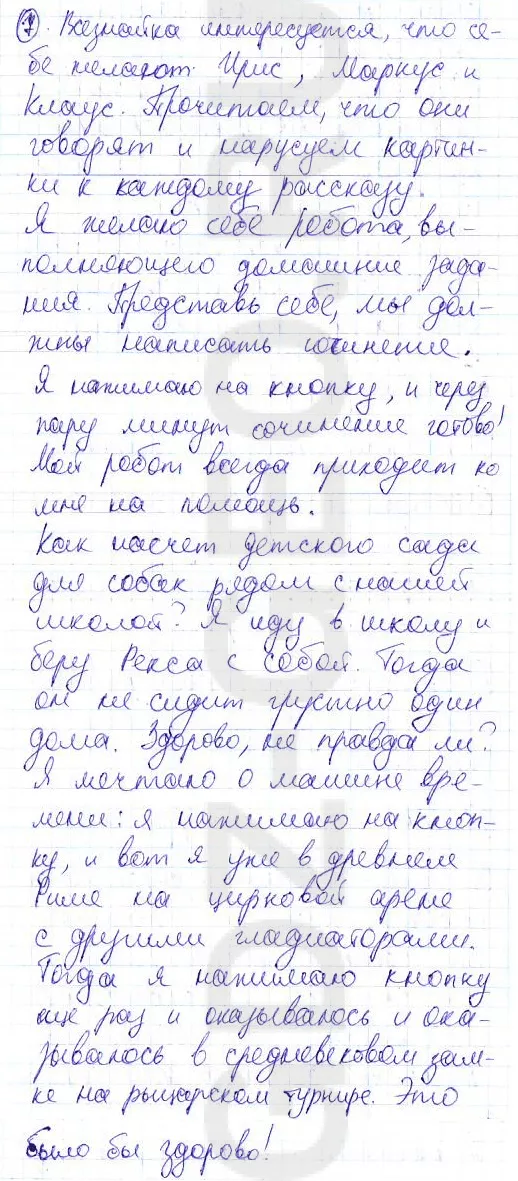 7. Всезнайка интересуется, что се-
бе желают Ирис, Маркус и
Клаус. Прочитаем, что они
говорят и нарусуем картин-
ки к каждому рассказу.
Я желаю себе робота, вы-
полняющего домашние зада-
ния. Представь себе, мы дол-
жны написать сочинение.
Я нажимаю на кнопку, и через
пару минут сочинение готово!
Мой робот всегда приходит ко
мне на помощь.
Как насчет детского сада
для собак рядом с нашей
школой? Я иду в школу и
беру Рекса с собой. Тогда
он не сидит грустно один
дома. Здорово, не правда ли?
Я мечтаю о машине вре-
мени: я нажимаю на кноп-
ку, и вот я уже в древнем
Риме на цирковой арене
с другими гладиаторами.
Тогда я нажимаю кнопку
еще раз и оказываюсь и ока-
зываюсь в средневековом зам-
ке на рыцарском турнире. Это
было бы здорово!
GDZ-GEO.RU